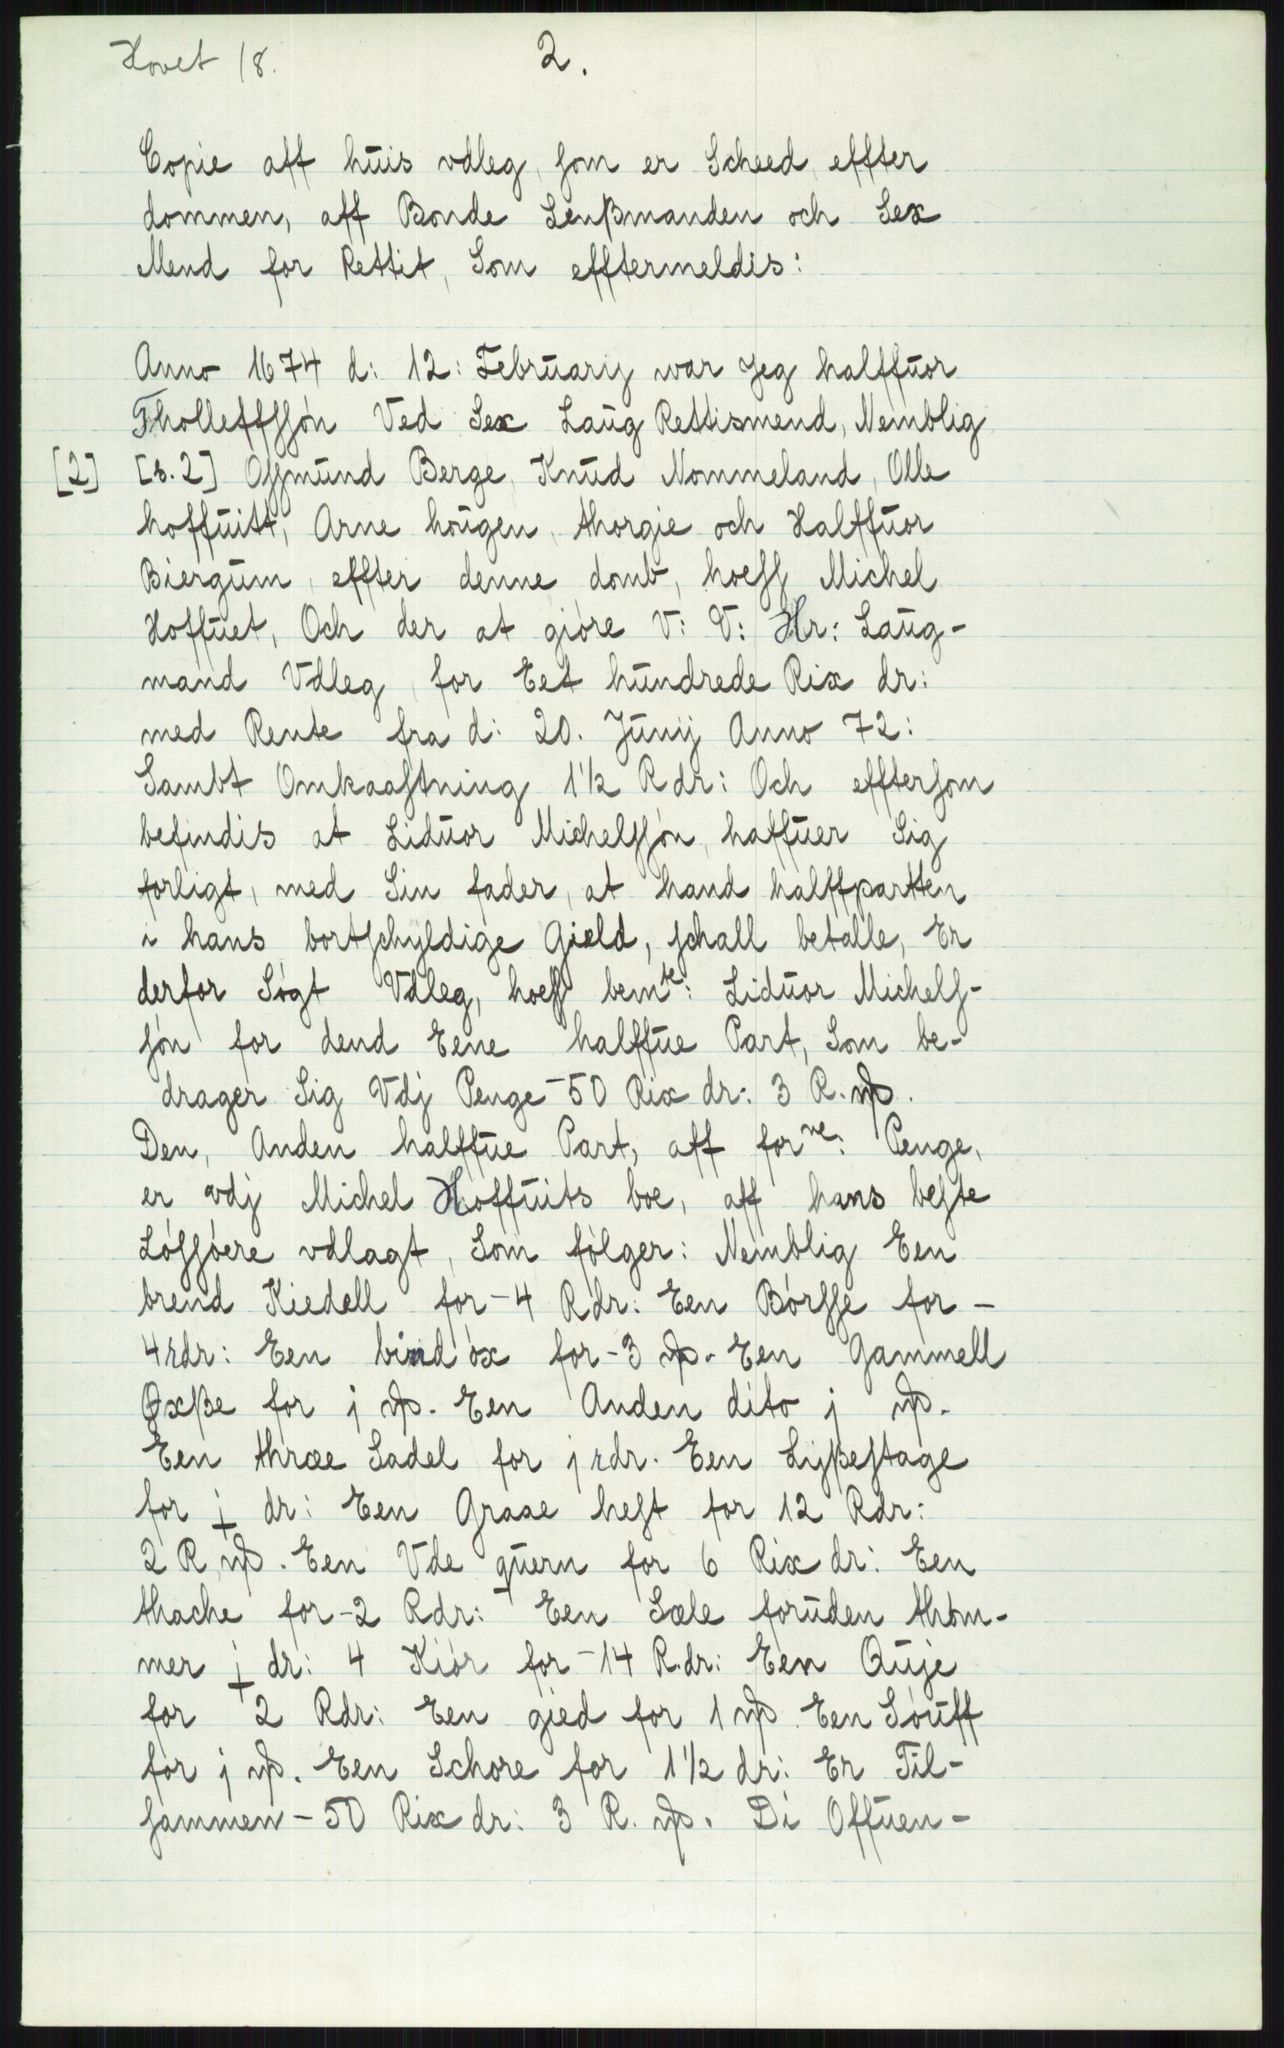 Hovet 18.
2.
Copie aff huis vdleg, som er Scheed, effter
dommen, aff Bonde Lenßmanden och Sex
Mend for Rettit, Som efftermeldis:
Anno 1674 d: 12: Februarij war Jeg halffuor
Tholleffssón Ved Sex Laug Rettismend, Nemblig
[2] [s. 2] Ossmund Berge, Knud Nommeland, Olle
hoffuitt, Arne hougen, thorgie och Halffuor
Biergum, effter denne domb, hoess Michel
Hoffuet, Och der at gióre V: V: Hr: Laug-
mand Vdleg, for Eet hundrede Rix dr:
med Rente fra d: 20. Junij Anno 72:
Sambt Omkaastning 1½ Rdr: Och efftersom
befindis at Liduor Michelssón, haffuer Sig
forligt, med Sin fader, at hand halffpartten
i hans bortschyldige Gield, schall betalle, Er
derfor Sógt Vdleg, hoess bemte: Liduor Michels-
són for dend Eene halffue Part, Som be-
drager Sig Vdj Penge - 50 Rix dr: 3 R. mp.
Den, Anden halffue Part, aff forne: Penge,
er vdj Michel Hoffuits boe, aff hans beste
Lóssóere vdlagt, Som fólger: Nemblig Een
brend Kiedell for - 4 Rdr: Een Bórsse for -
4rdr: Een bind óx for - 3 mp. Een Gammell
Oxße for j mp. Een Anden dito j mp.
Een thræe Sadel for j rdr. Een Lyßestage
for j dr: Een Graae hest for 12 Rdr:
2 R mp. Een Vde quern for 6 Rix dr: Een
thache for - 2 Rdr: Een Sæle foruden thóm-
mer j dr: 4 Kiór for - 14 R.dr: Een Quje
for 2 Rdr: Een gied for 1 mp. Een Souff
for j mp. Een Schore for 1½ dr: Er Til-
sammen - 50 Rix dr: 3 R. mp. Di Offuen-